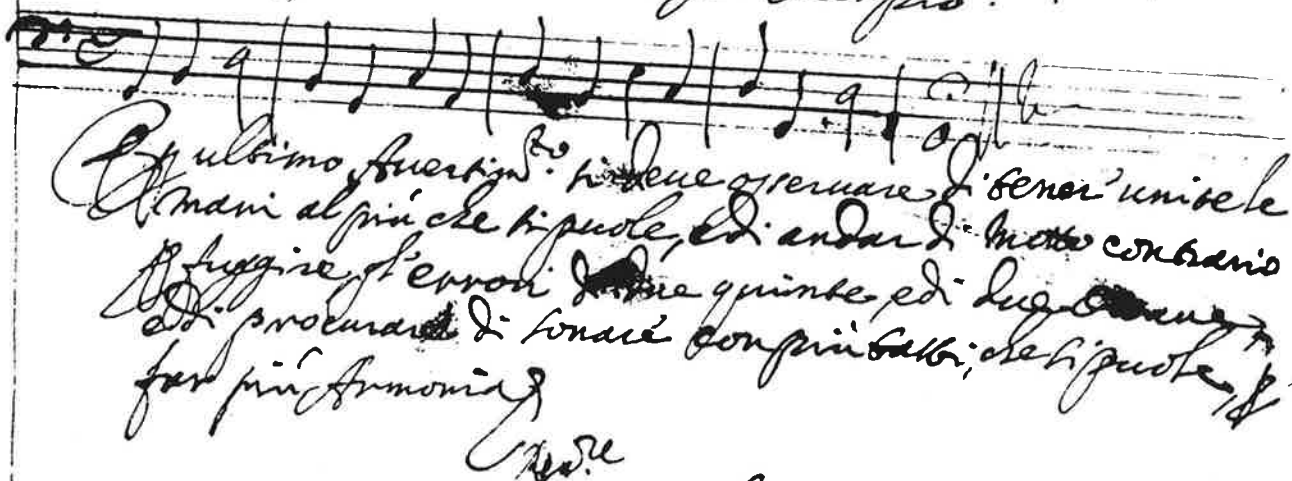 Per ultimo Avertim.to si deve osservare di tener' unite le
mani al più che si puole, e di andar di moto contrario
p fuggire gl'errori di due quinte e di due ottave,
e di procurare di sonare con più tasti, che si puole, p
far più Armonia